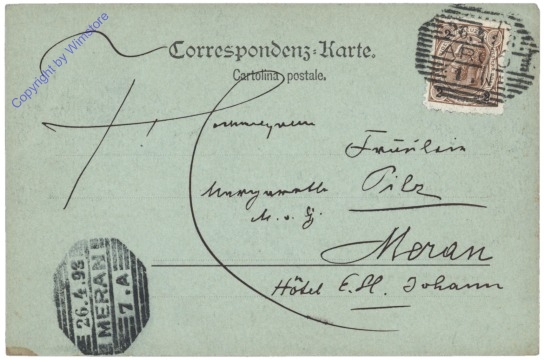 Copyright by Winstore
Correspondenz-Karte.
Cartolina postale.
Fräulein
Margarethe
Pilz
M. v. G.
Meran
Hôtel E. H. Johann
26.4.98
MERAN
7.A